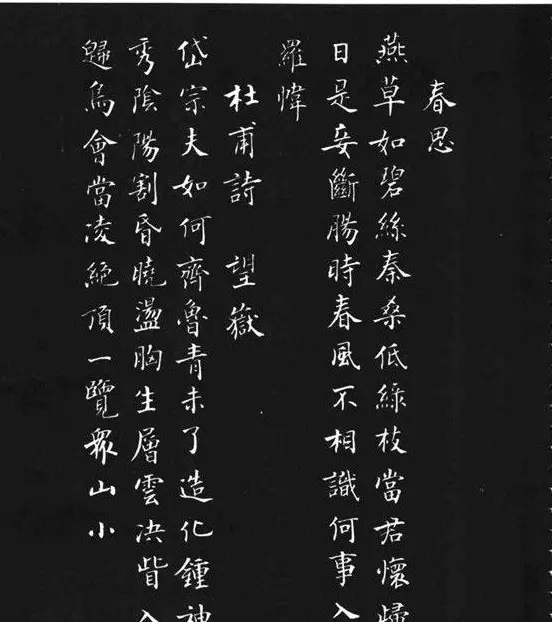 春思
燕草如碧絲秦桑低綠枝當君懷歸
日是妾斷腸時春風不相識何事入
羅幃
杜甫詩 望嶽
岱宗夫如何齊魯青未了造化鍾神
秀陰陽割昏曉盪胸生層雲決眥入
歸鳥會當凌絕頂一覽眾山小